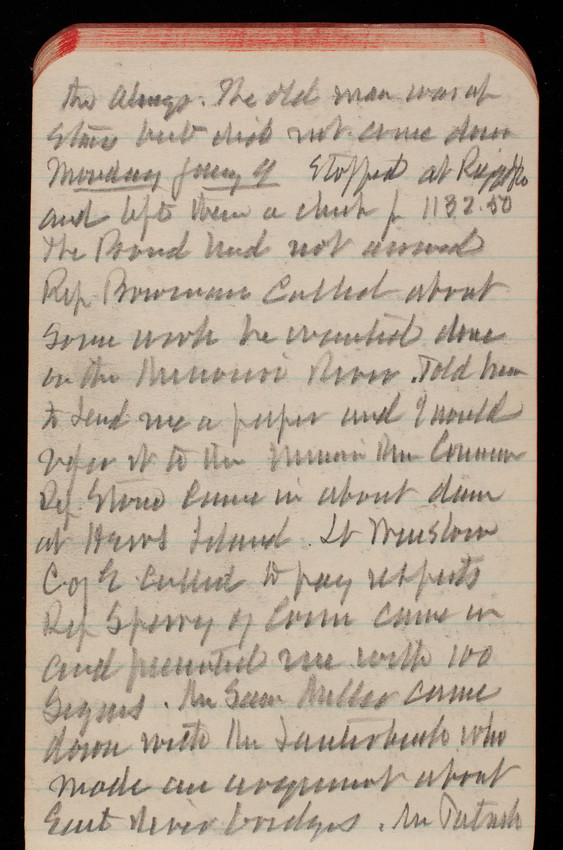 the always. The old man was up
Stairs but did not come down
Monday Jany 9 Stopped at Riggs
and left them a check for 1132.50
The Bond had not arrived
Rep Bowman called about
some work he wanted done
on the Missouri River. Told him
to send me a paper and I would
refer it to the Missouri Riv Comm
Rep. Stone came in about dam
at Hews Island. Lt Winslow
C of E called to pay respects
Rep Sperry of Conn came in
and presented me with 100
Segars. Mr Miller came
down with Mr Lauterbach who
made an argument about
East River bridges. Mr